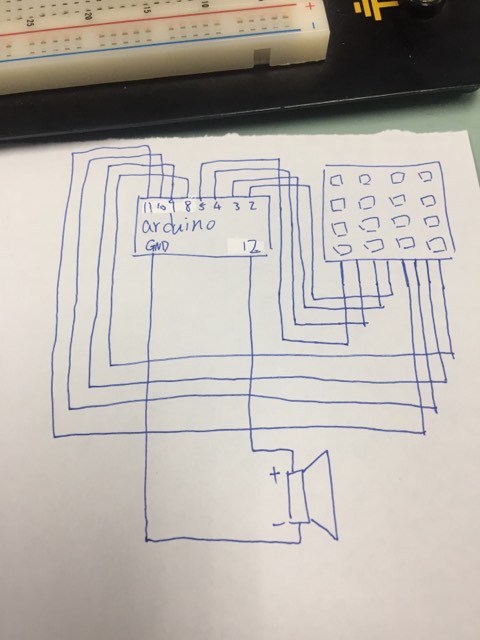 25
20
15
10
+
-
11 10 9 8 5 4 3 2
arduino
GND 12
+
-